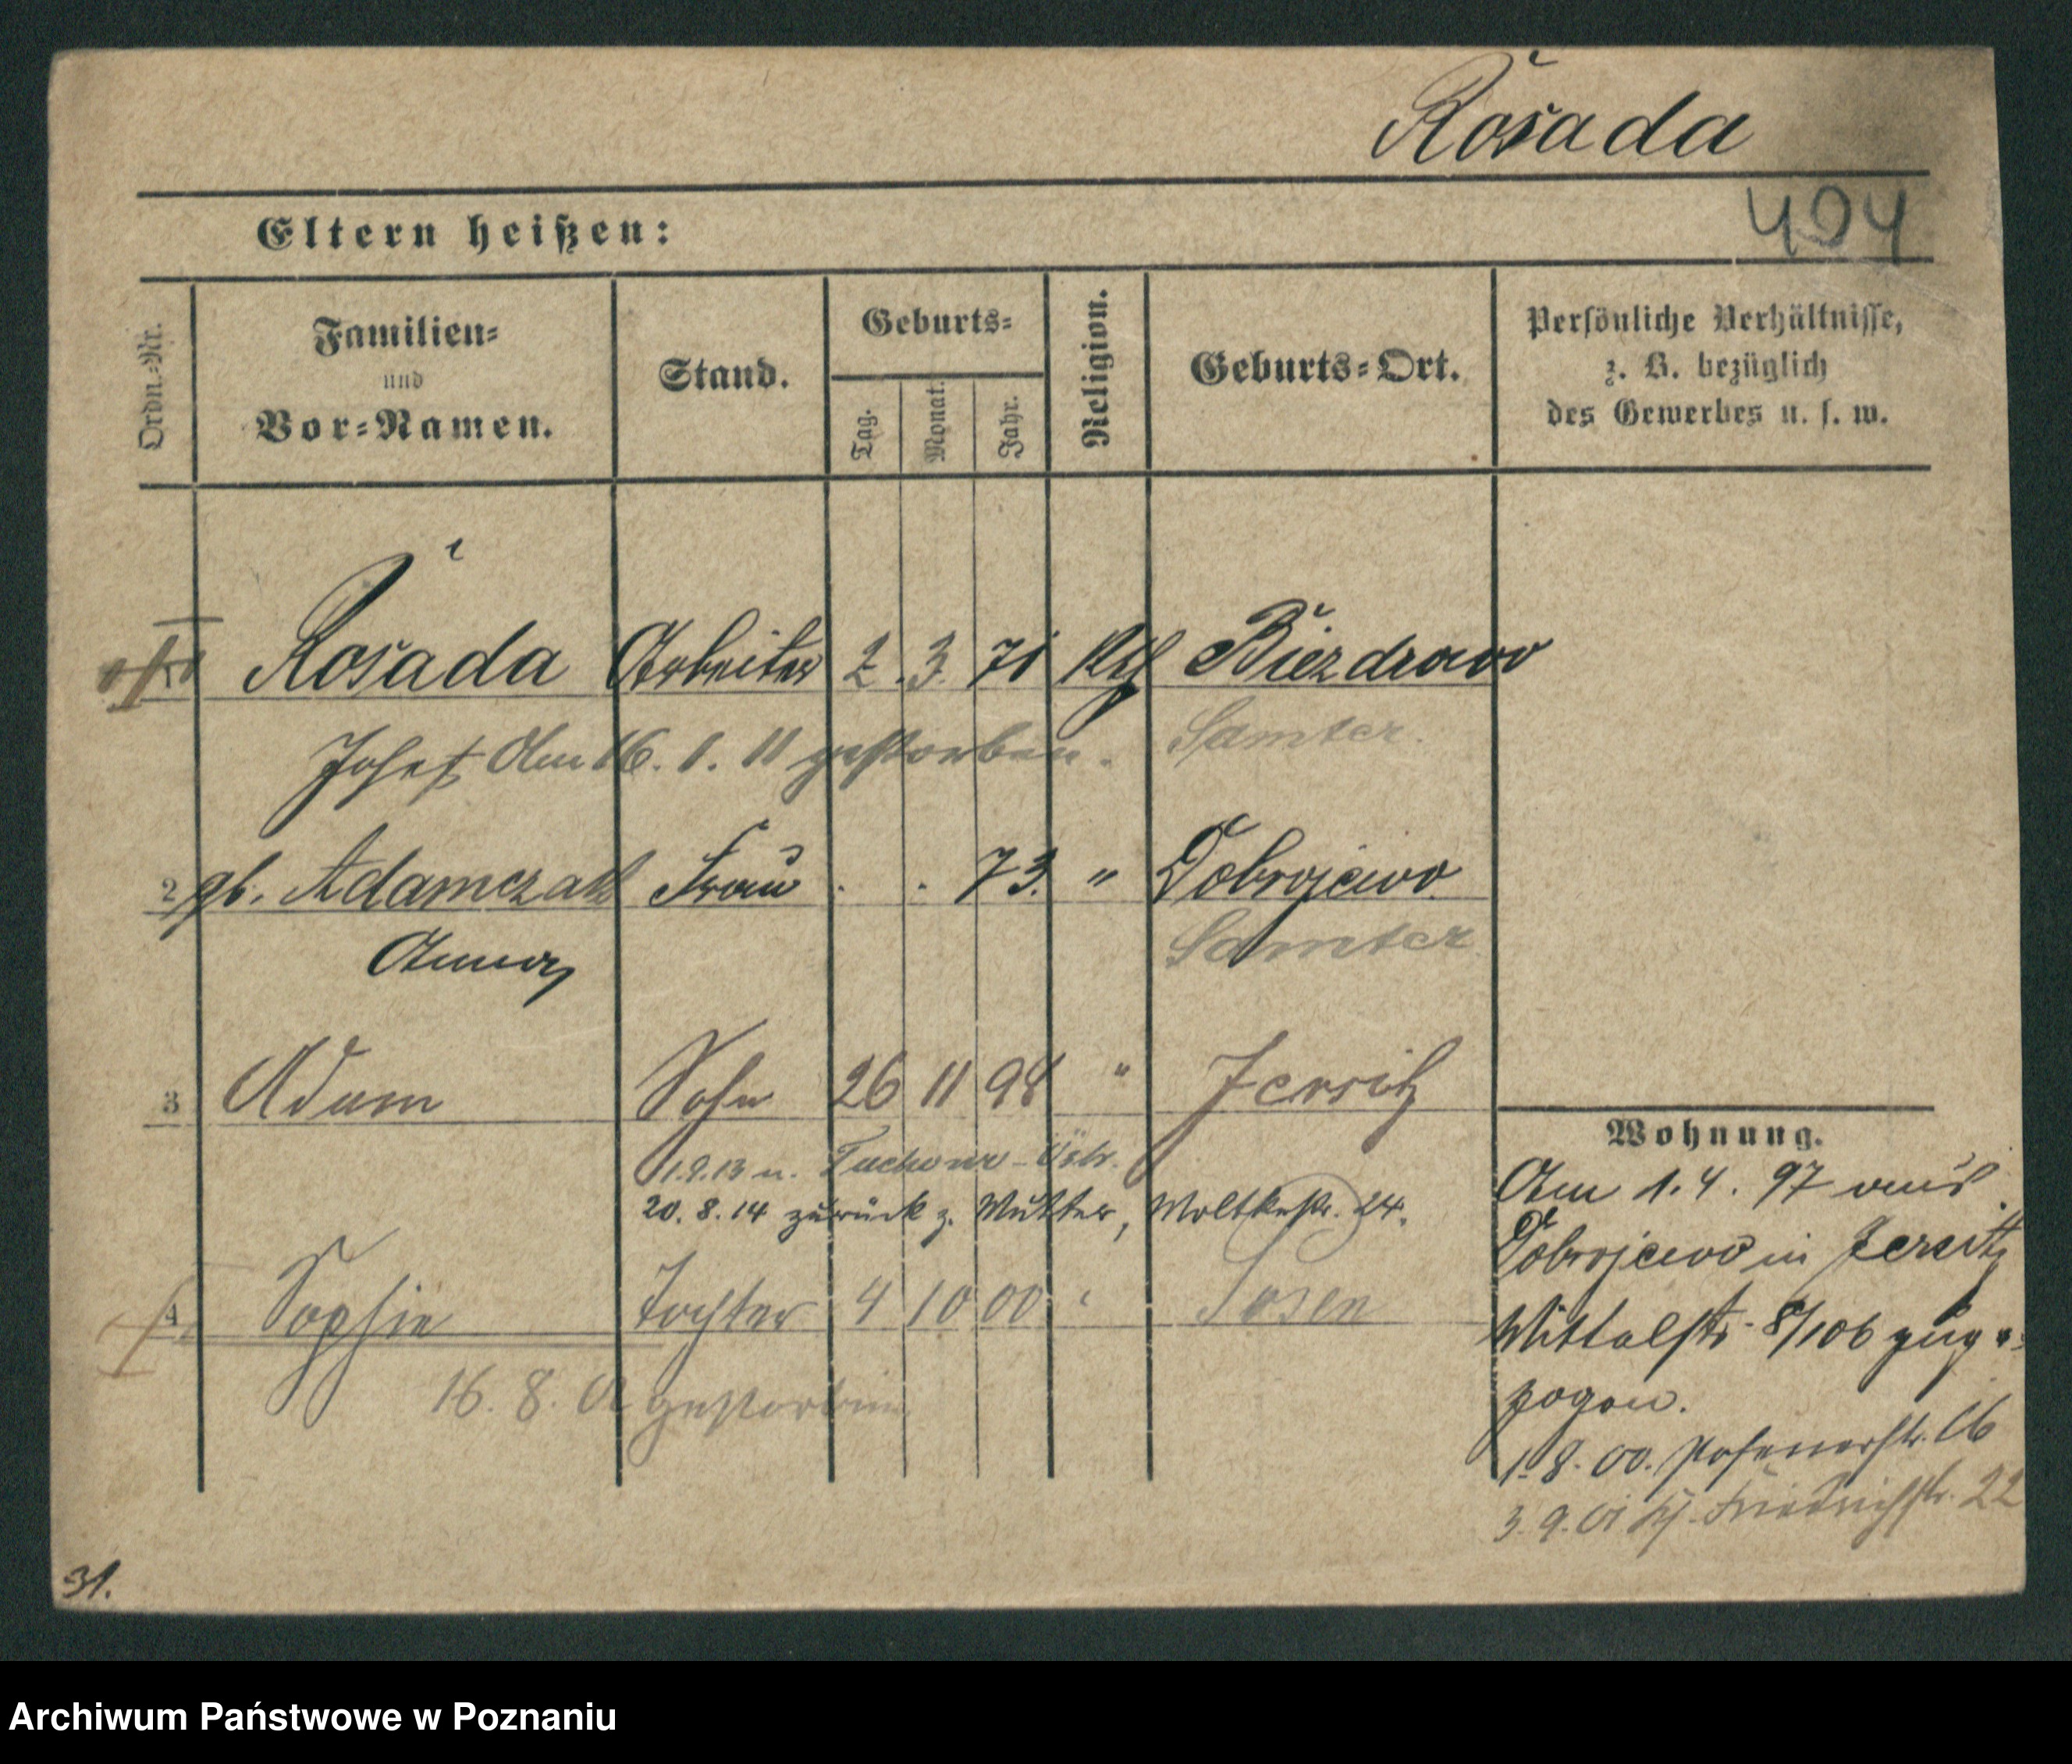 Rosada
404
Eltern heißen:
Ordn.-Nr.
Familien-
und
Vor-Namen.
Stand.
Geburts-
Tag.
Monat.
Jahr.
Religion.
Geburts-Ort.
Persönliche Verhältnisse,
z. B. bezüglich
des Gewerbes u. s. w.
Rosada Arbeiter 2. 3. 71 Kth Biezdrowo
Josef Am 16. 1. 11 gestorben. Samter.
2 gb. Adamczak Frau . . 73. " Dobrojewo
Anna Samter
3 Adam Sohn 26 11 98 " Jersitz
1.9.13 n.
20. 8. 14 zurück z. Mutter, Moltkestr. 24.
4 Sophie Tochter 4 10 00 " Posen
16. 8. 01 gestorben
Wohnung.
Am 1. 4. 97 aus
Dobrojewo in Jersitz
Mittelstr. 8/106 zuge-
zogen.
1.8.00. Posenerstr. 16
3.9.01 Friedrichstr. 22
31.
Archiwum Państwowe w Poznaniu